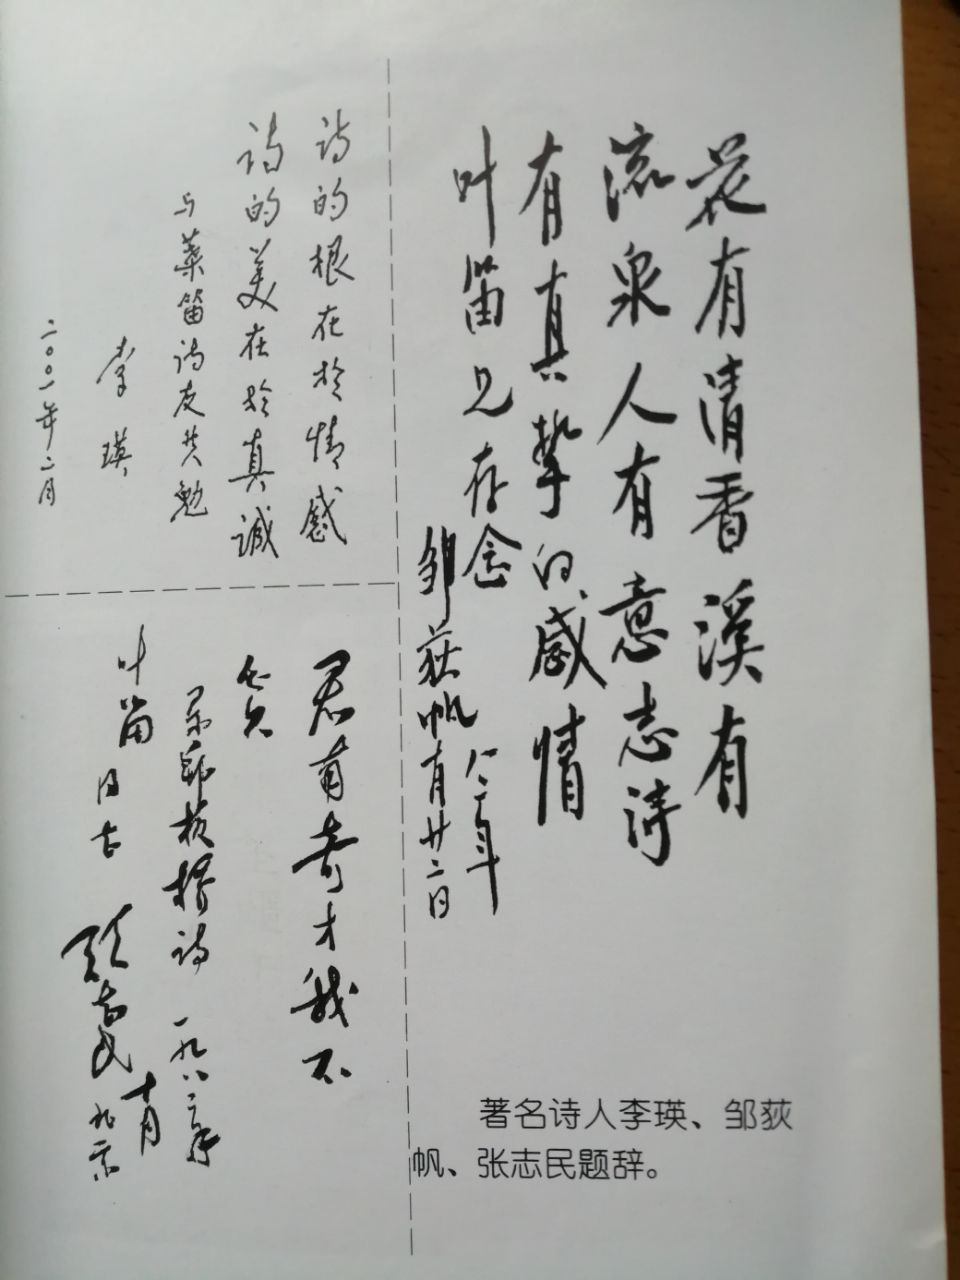 花有清香溪有
流泉人有意志诗
有真挚的感情
叶笛兄存念
邹荻帆
八二年
有廿二日
诗的根在於情感
诗的美在於真诚
与叶笛诗友共勉
李瑛
二〇〇一年二月
君有奇才我不
贫
录郑板桥诗 一九八二年
叶笛同志
张志民
十月
北京
著名诗人李瑛、邹荻
帆、张志民题辞。